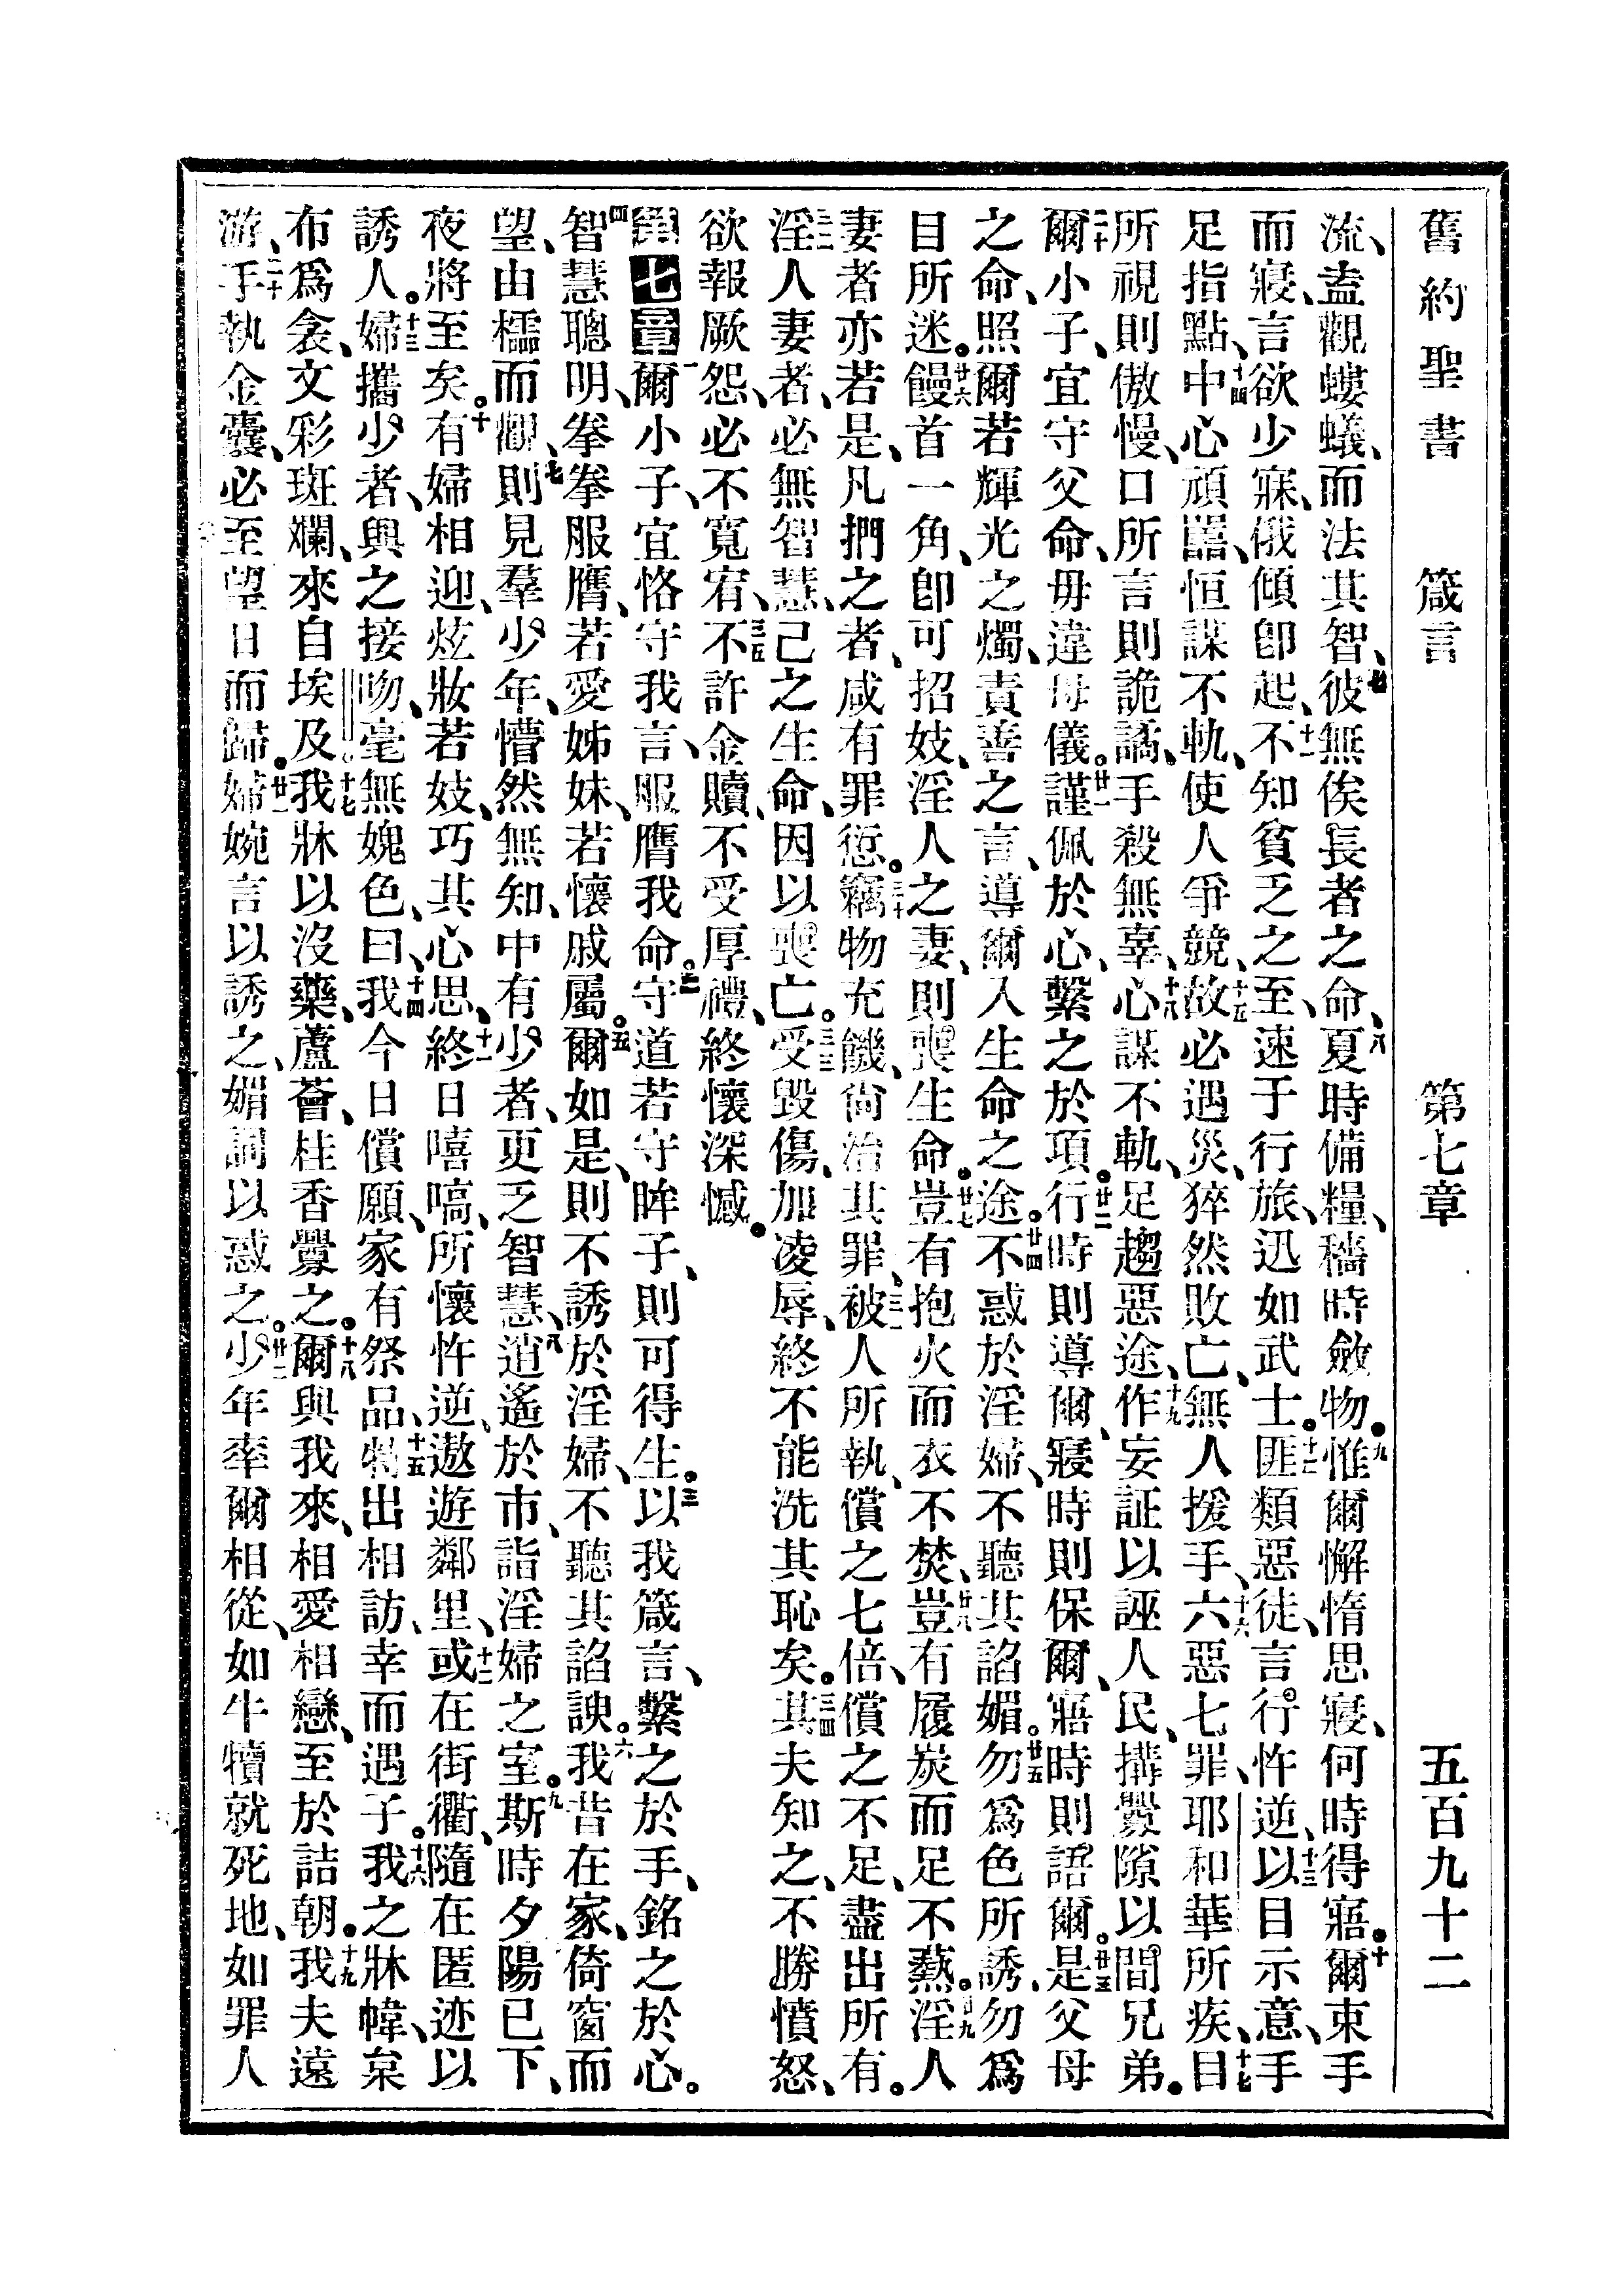 舊約聖書 箴言 第七章 五百九十二
流、盍觀螻蟻、而法其智、七彼無俟長者之命、八夏時備糧、穡時斂物。九惟爾懈惰思寢、何時得寤。十爾束手
而寢、言欲少寐、俄傾卽起、十一不知貧乏之至、速于行旅、迅如武士。十二匪類惡徒、言行忤逆、十三以目示意、手
足指點、十四中心頑嚚、恒謀不軌、使人爭競、十五故必遇災、猝然敗亡、無人援手、十六六惡七罪、耶和華所疾、十七目
所視則傲慢、口所言則詭譎、手殺無辜、十八心謀不軌、足趨惡途、十九作妄証以誣人民、搆釁隙以間兄弟。
二十爾小子、宜守父命、毋違母儀。廿一謹佩於心、繫之於項。廿二行時則導爾、寢時則保爾、寤時則語爾。廿三是父母
之命、照爾若輝光之燭、責善之言、導爾入生命之途。廿四不惑於淫婦、不聽其諂媚。廿五勿爲色所誘、勿爲
目所迷。廿六饅首一角、卽可招妓、淫人之妻、則喪生命。廿七豈有抱火而衣不焚、廿八豈有履炭而足不爇。廿九淫人
妻者亦若是、凡捫之者、咸有罪愆。三十竊物充饑、尙治其罪、三一被人所執、償之七倍、償之不足、盡出所有。
三二淫人妻者、必無智慧、己之生命、因以喪亡。三三受毀傷、加凌辱、終不能洗其恥矣。三四其夫知之、不勝憤怒、
欲報厥怨、必不寬宥、三五不許金贖、不受厚禮、終懷深憾。
第七章一爾小子、宜恪守我言、服膺我命、二守道若守眸子、則可得生。三以我箴言、繫之於手、銘之於心。
四智慧聰明、拳拳服膺、若愛姊妹、若懷戚屬。五爾如是、則不誘於淫婦、不聽其諂諛。六我昔在家、倚窗而
望、由櫺而觀、七則見羣少年、懵然無知、中有少者、更乏智慧、八逍遙於市、詣淫婦之室。九斯時夕陽已下、
夜將至矣。十有婦相迎、炫妝若妓、巧其心思、十一終日嘻嗃、所懷忤逆、遨遊鄰里、十二或在街衢、隨在匿迹以
誘人。十三婦攜少者、與之接吻、毫無媿色、曰、十四我今日償願、家有祭品、十五特出相訪、幸而遇子。十六我之牀幃、枲
布爲衾、文彩斑斕、來自埃及。十七我牀以沒藥、蘆薈、桂香釁之。十八爾與我來、相愛相戀、至於詰朝。十九我夫遠
游、二十手執金囊、必至望日而歸。廿一婦婉言以誘之、媚詞以惑之。廿二少年率爾相從、如牛犢就死地、如罪人